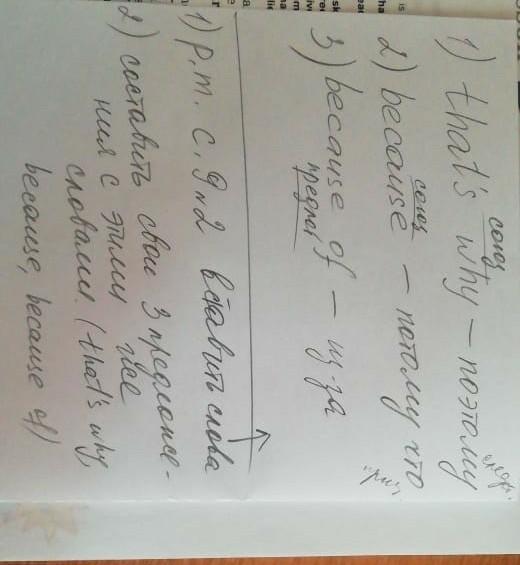 союз
1) that's why — поэтому
союз
2) because — потому что
3) because of — из-за
предлог
1) р.т. с. 9 №2 вставить слова
2) составить свои 3 предложе-
ния с этими
словами. (that's why,
because, because of)